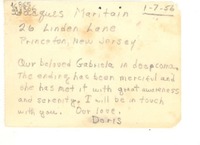 Jacques Maritain
1-7-56
26 Linden Lane
Princeton, New Jersey
Our beloved Gabriela in deep coma.
The ending has been merciful and
she has met it with great awareness
and serenity. I will be in touch
with you. Our love.
Doris